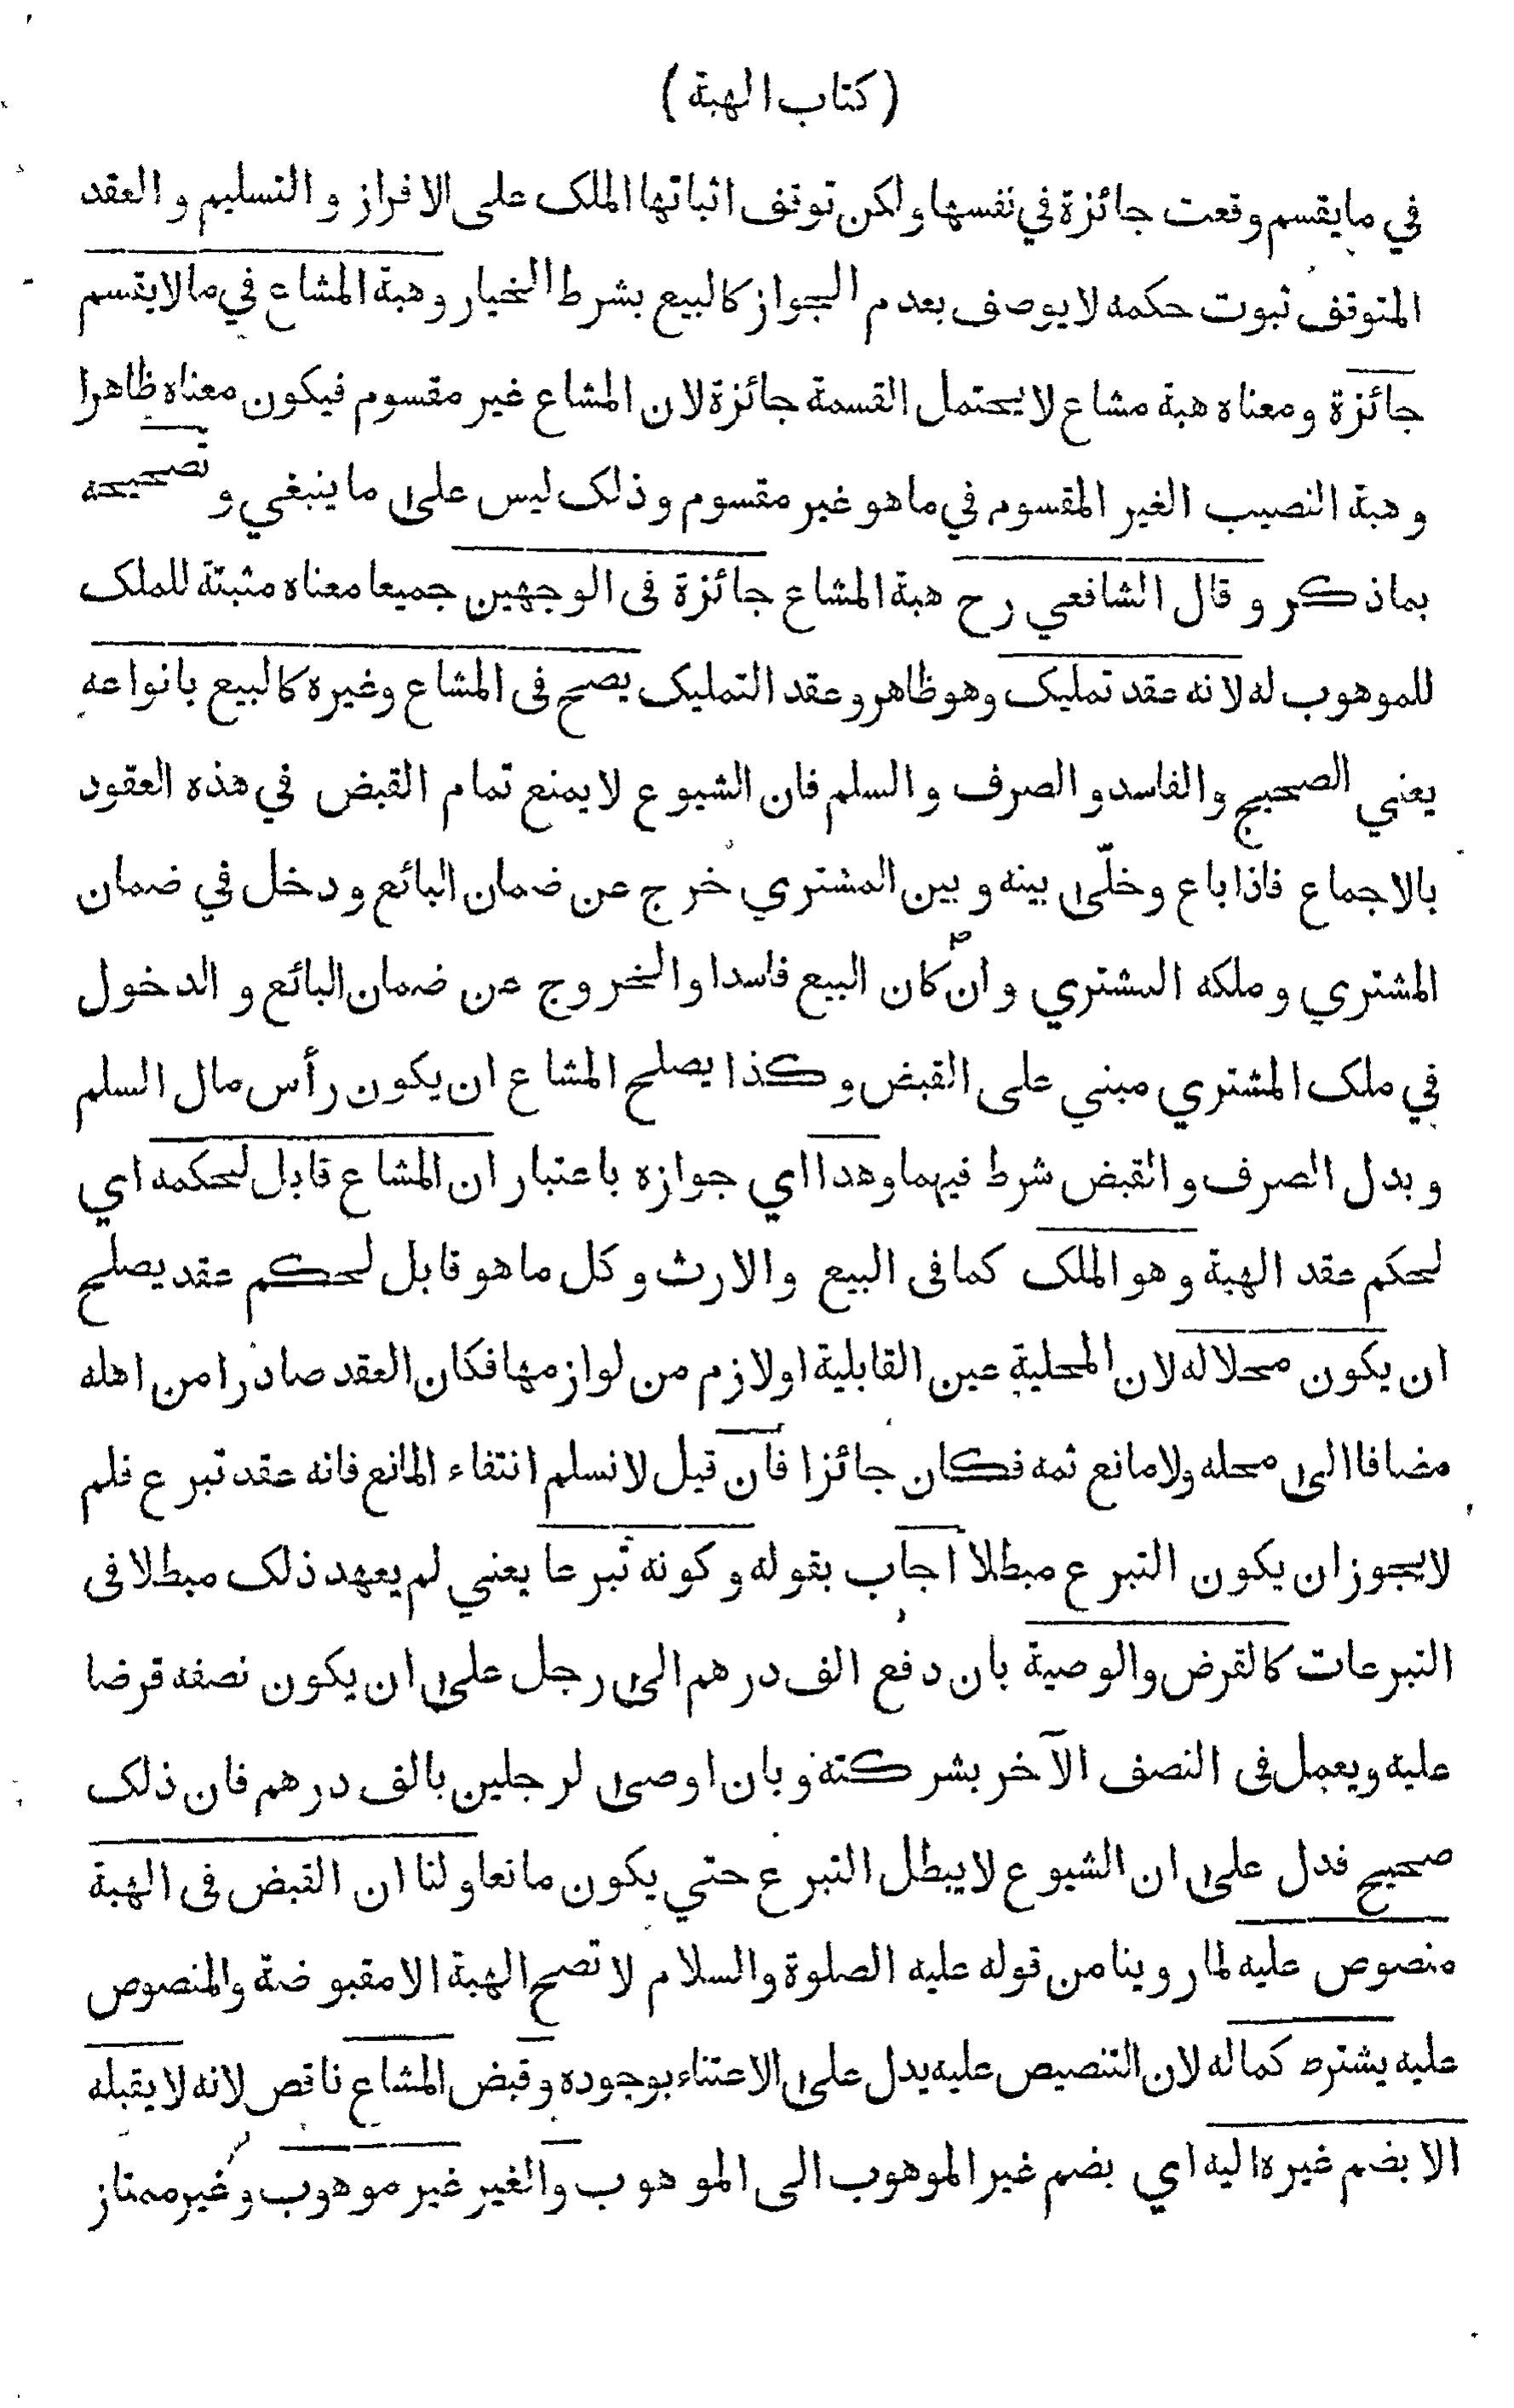 (كتاب الهبة)
في ما يقسم وقعت جائزة في نفسها ولكن توقف اثباتها الملك على الافراز والتسليم والعقد
المتوقف ثبوت حكمه لا يوصف بعدم الجواز كالبيع بشرط الخيار وهبة المشاع في مالا يقسم
جائزة ومعناه هبة مشاع لا يحتمل القسمة جائزة لان المشاع غير مقسوم فيكون معناه ظاهرا
وهبة النصيب الغير المقسوم في ما هو غير مقسوم وذلك ليس على ما ينبغي وتصحيحه
بما ذكر وقال الشافعي رح هبة المشاع جائزة فى الوجهين جميعا معناه مثبتة للملك
للموهوب له لانه عقد تمليك وهو ظاهر وعقد التمليك يصح فى المشاع وغيره كالبيع بانواعه
يعني الصحيح والفاسد والصرف والسلم فان الشيوع لا يمنع تمام القبض في هذه العقود
بالاجماع فاذا باع وخلّى بينه وبين المشتري خرج عن ضمان البائع ودخل في ضمان
المشتري وملكه المشتري وان كان البيع فاسدا والخروج عن ضمان البائع والدخول
في ملك المشتري مبني على القبض وكذا يصلح المشاع ان يكون رأس مال السلم
وبدل الصرف والقبض شرط فيهما وهذا اي جوازه باعتبار ان المشاع قابل لحكمه اي
لحكم عقد الهبة وهو الملك كما فى البيع والارث وكل ما هو قابل لحكم عقد يصلح
ان يكون محلا له لان المحلية عين القابلية او لازم من لوازمها فكان العقد صادرا من اهله
مضافا الى محله ولا مانع ثمه فكان جائزا فان قيل لا نسلم انتفاء المانع فانه عقد تبرع فلم
لا يجوز ان يكون التبرع مبطلا اجاب بقوله وكونه تبرعا يعني لم يعهد ذلك مبطلا فى
التبرعات كالقرض والوصية بان دفع الف درهم الى رجل على ان يكون نصفه قرضا
عليه ويعمل فى النصف الآخر بشركته وبان اوصى لرجلين بالف درهم فان ذلك
صحيح فدل على ان الشيوع لا يبطل التبرع حتي يكون مانعا ولنا ان القبض فى الهبة
منصوص عليه لما روينا من قوله عليه الصلوة والسلام لا تصح الهبة الا مقبوضة والمنصوص
عليه يشترط كماله لان التنصيص عليه يدل على الاعتناء بوجوده وقبض المشاع ناقص لانه لا يقبله
الا بضم غيره اليه اي بضم غير الموهوب الى الموهوب والغير غير موهوب وغير ممتاز